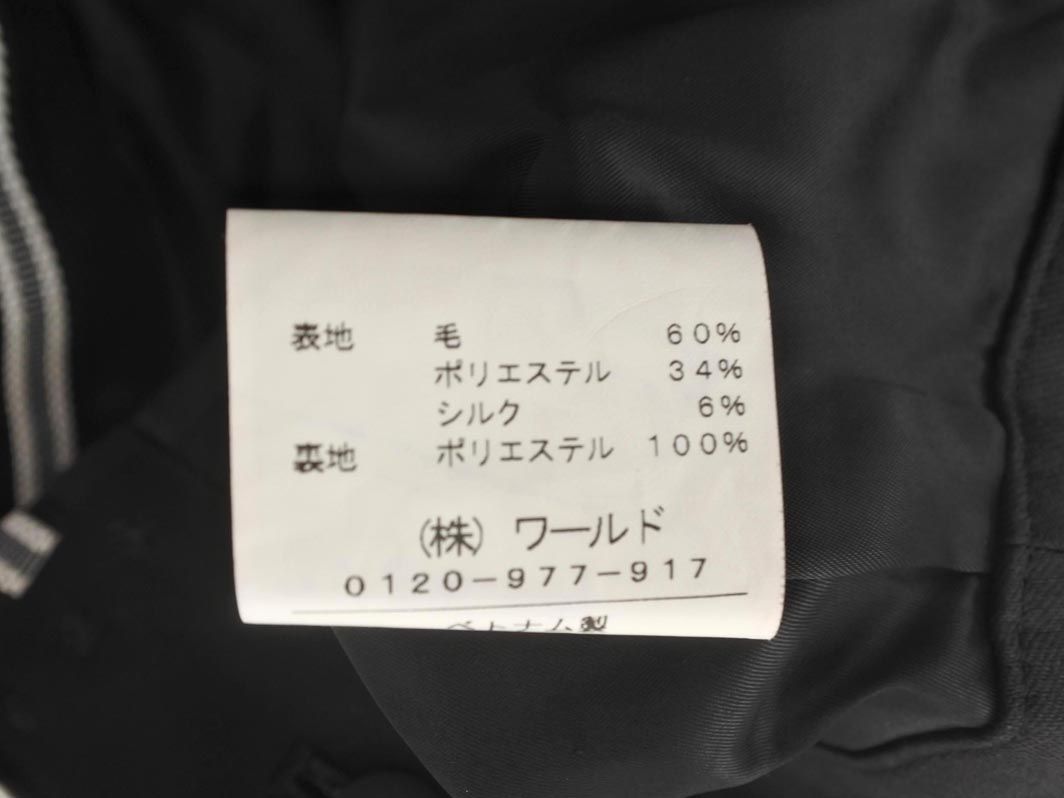 表地 毛 60%
ポリエステル 34%
シルク 6%
裏地 ポリエステル 100%
(株) ワールド
0120-977-917
ベトナム製